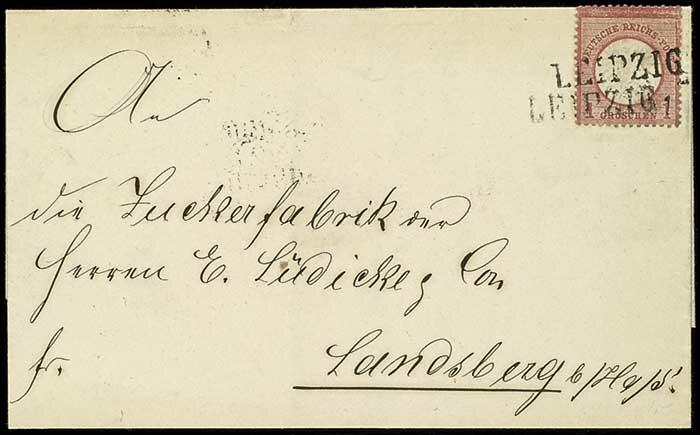 DEUTSCHE REICHS-POST
LEIPZIG
LEIPZIG
1 GROSCHEN 1
An
die Zuckerfabrik der
Herren E. Lüdicke & Co
fr.
Landsberg b/Ha/S.